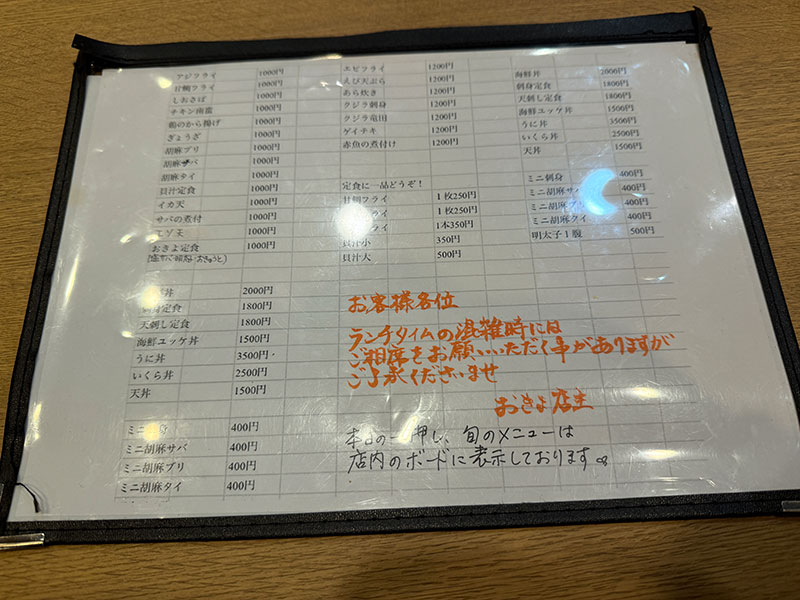 アジフライ 1000円
甘鯛フライ 1000円
しおさば 1000円
チキン南蛮 1000円
鶏のから揚げ 1000円
ぎょうざ 1000円
胡麻ブリ 1000円
胡麻サバ 1000円
胡麻タイ 1000円
貝汁定食 1000円
イカ天 1000円
サバの煮付 1000円
1000円
おきよ定食 1000円
エビフライ 1200円
えび天ぷら 1200円
あら炊き 1200円
クジラ刺身 1200円
クジラ竜田 1200円
ゲイテキ 1200円
赤魚の煮付け 1200円
定食に一品どうぞ!
甘鯛フライ 1枚250円
フライ 1枚250円
フライ 1本350円
貝汁小 350円
貝汁大 500円
海鮮丼 2000円
刺身定食 1800円
天刺し定食 1800円
海鮮ユッケ丼 1500円
うに丼 3500円
いくら丼 2500円
天丼 1500円
ミニ刺身 400円
ミニ胡麻サバ 400円
ミニ胡麻ブリ 400円
ミニ胡麻タイ 400円
明太子1腹 500円
丼 2000円
定食 1800円
天刺し定食 1800円
海鮮ユッケ丼 1500円
うに丼 3500円
いくら丼 2500円
天丼 1500円
ミニ 400円
ミニ胡麻サバ 400円
ミニ胡麻ブリ 400円
ミニ胡麻タイ 400円
お客様各位
ランチタイムの混雑時には
ご相席をお願いいただく事がありますが
ご了承くださいませ
おきよ店主
本日の一押し、旬のメニューは
店内のボードに表示しております。